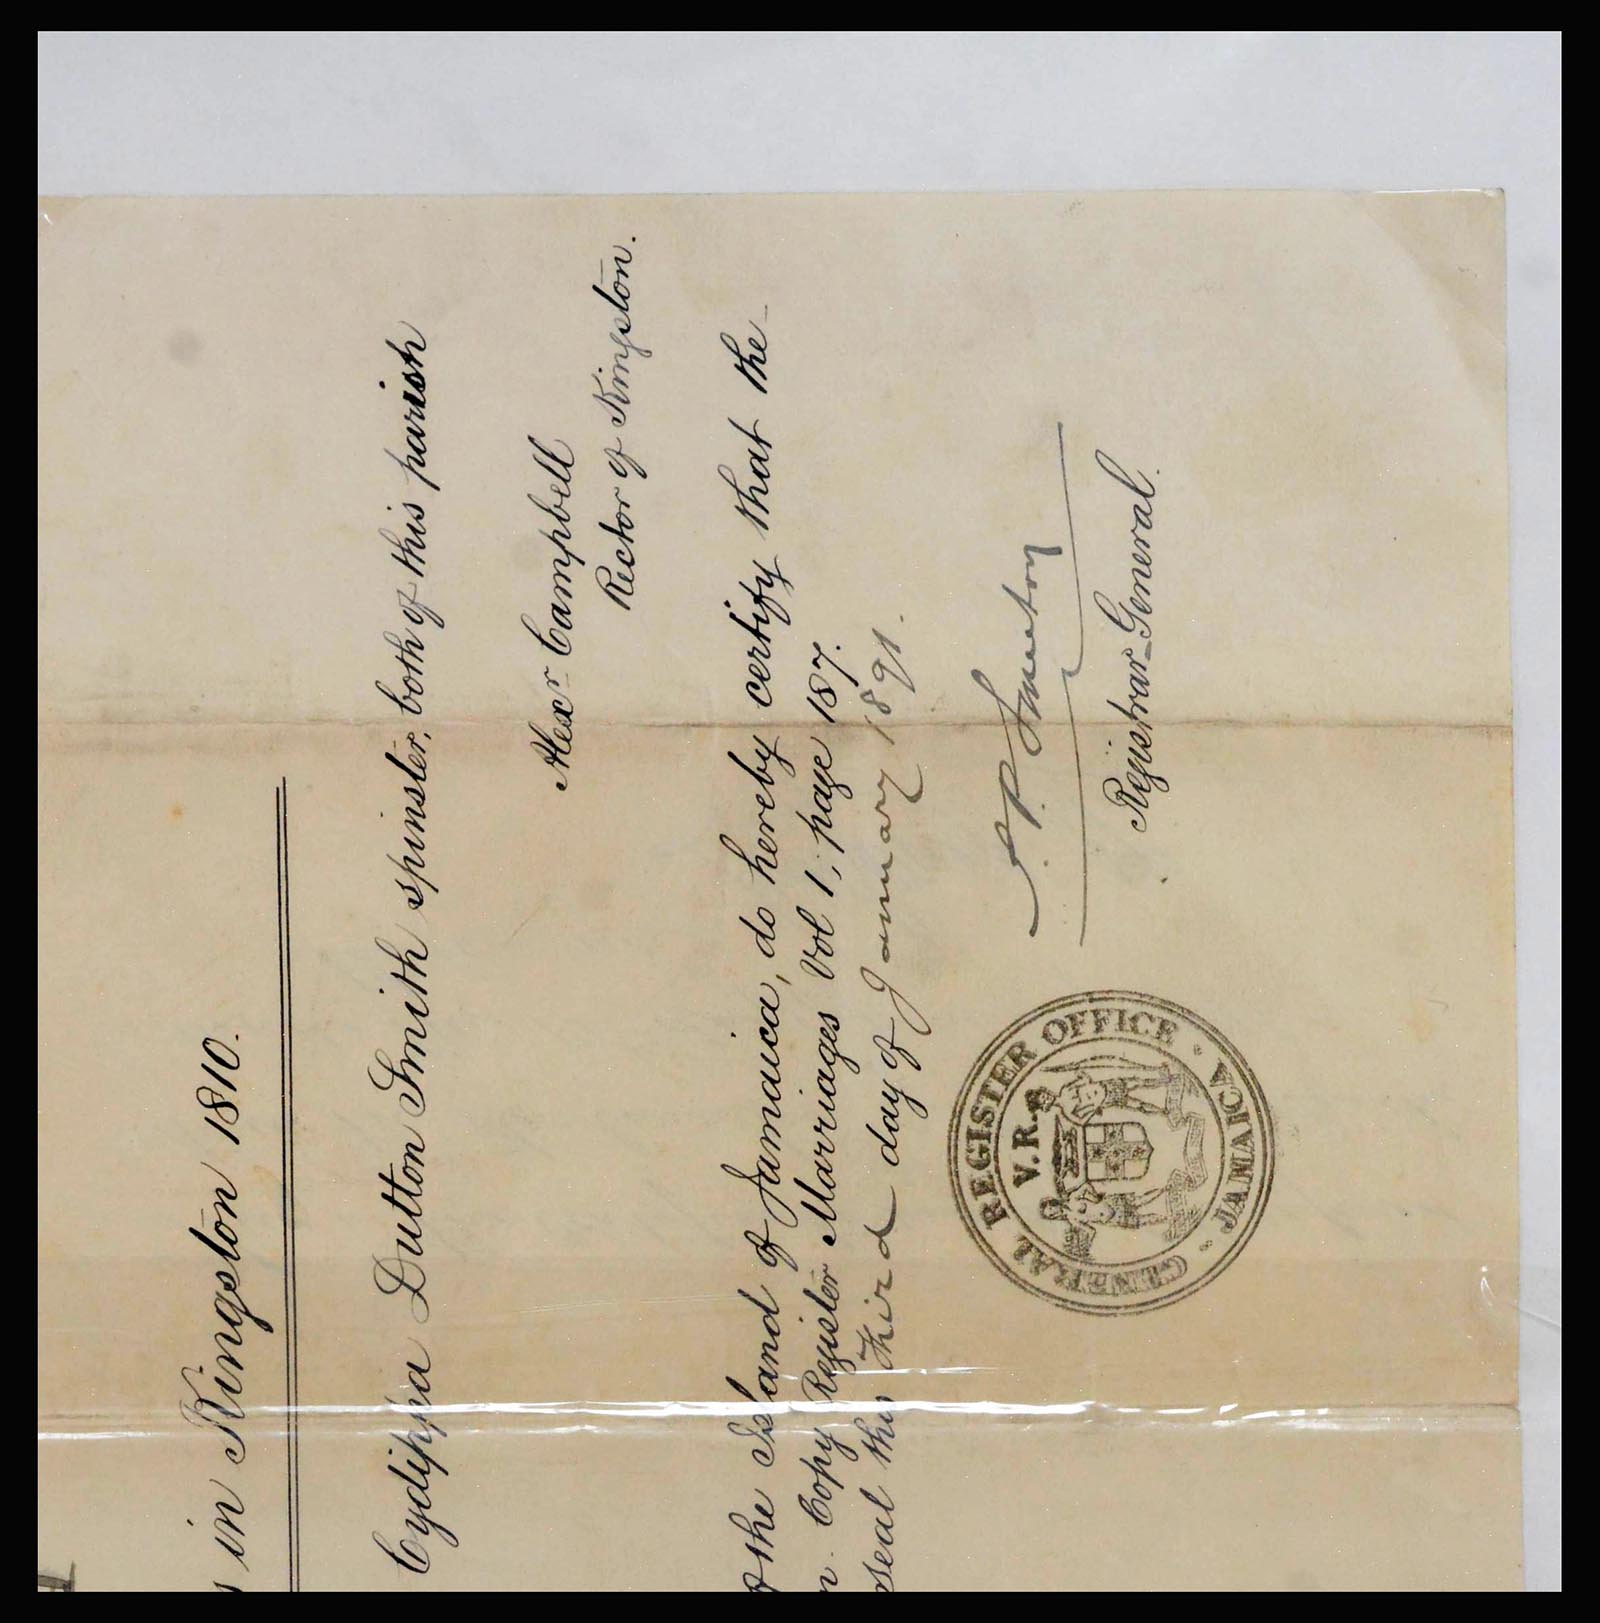 in Kingston 1810.
Cydippa Dutton Smith spinster, both of this parish
Alexr Campbell
Rector of Kingston.
of the Island of Jamaica, do hereby certify that the
Copy Register Marriages Vol 1, page 187.
seal this third day of January 1891.
Registrar-General.
GENERAL REGISTER OFFICE · JAMAICA ·
V.R.